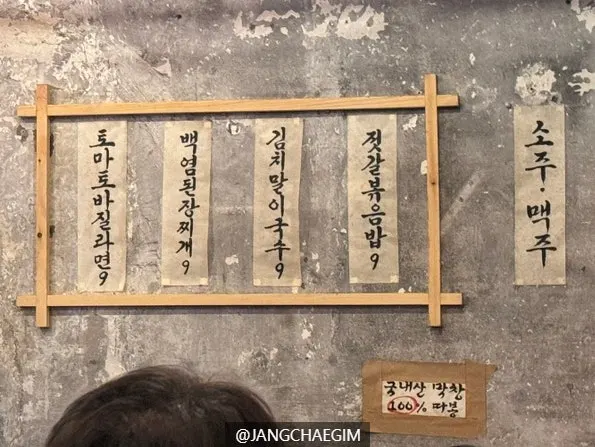 토마토바질라면9
백염된장찌개9
김치말이국수9
젓갈볶음밥9
소주·맥주
국내산 막창
100% 따봉
@JANGCHAEGIM